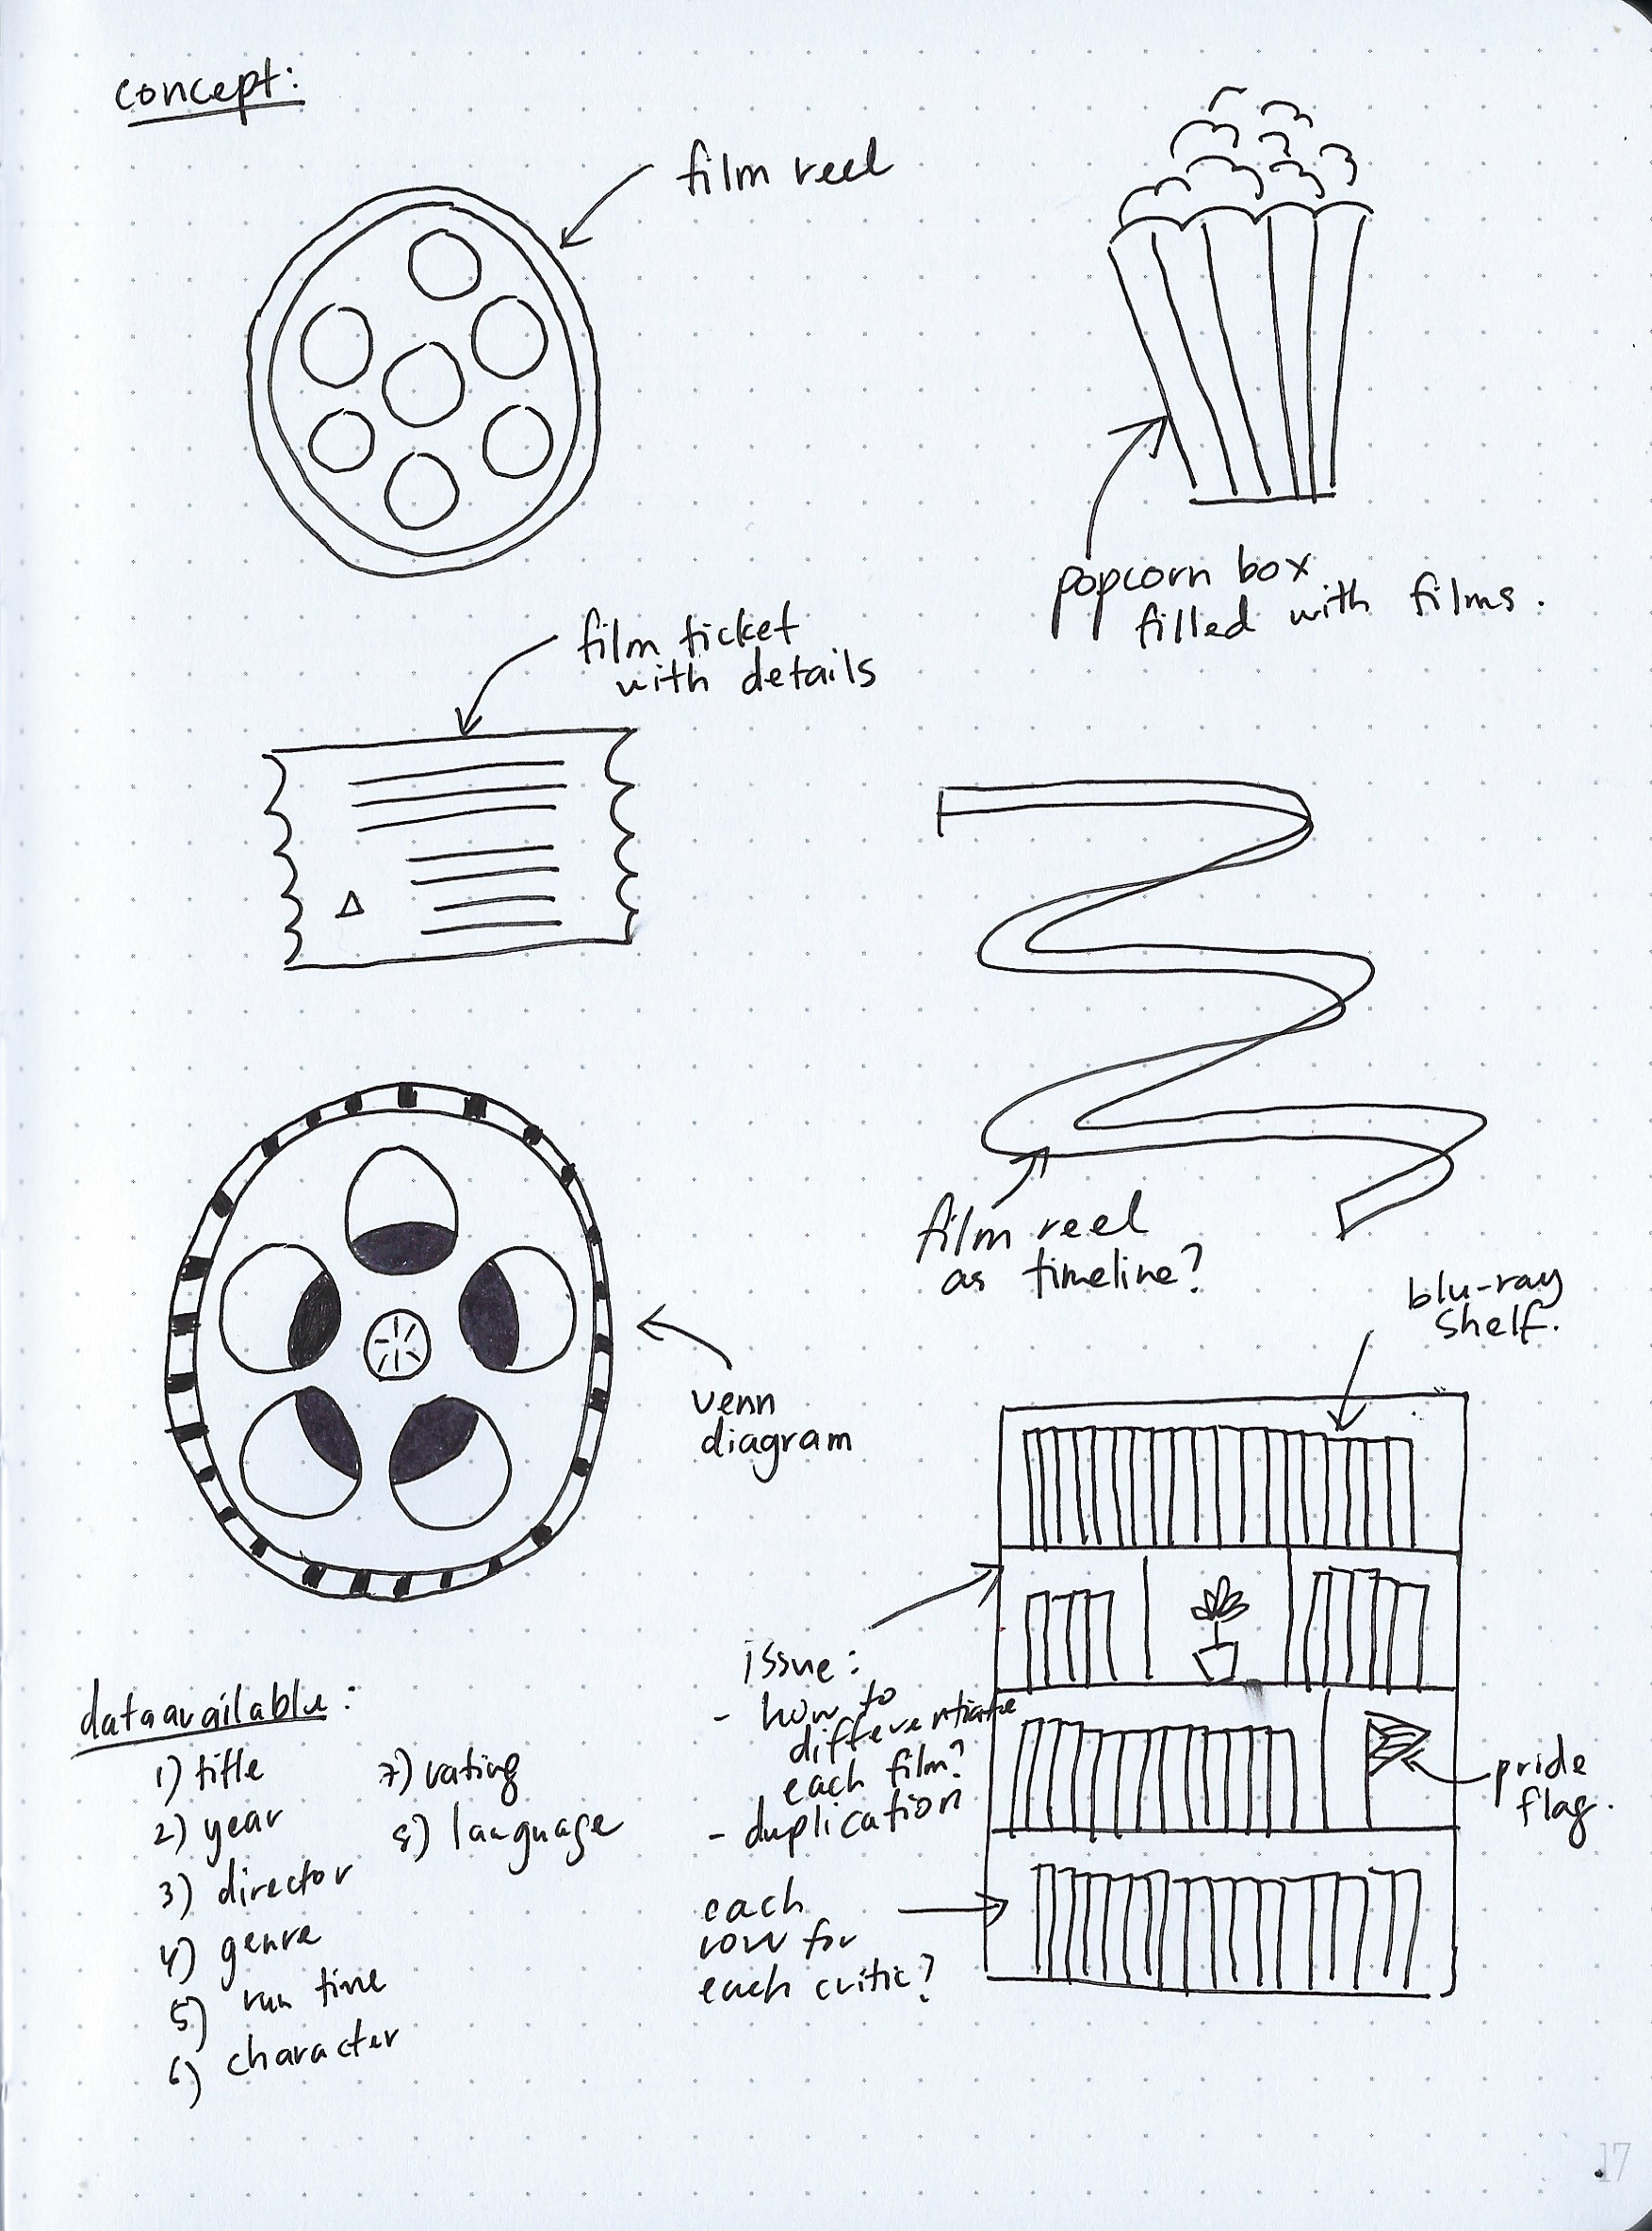 concept:
film reel
popcorn box
filled with films.
film ticket
with details
film reel
as timeline?
venn
diagram
blu-ray
shelf.
issue:
- how to
differentiate
each film?
- duplication
pride
flag.
each
row for
each critic?
data available:
1) title
2) year
3) director
4) genre
5) run time
6) character
7) rating
8) language
17